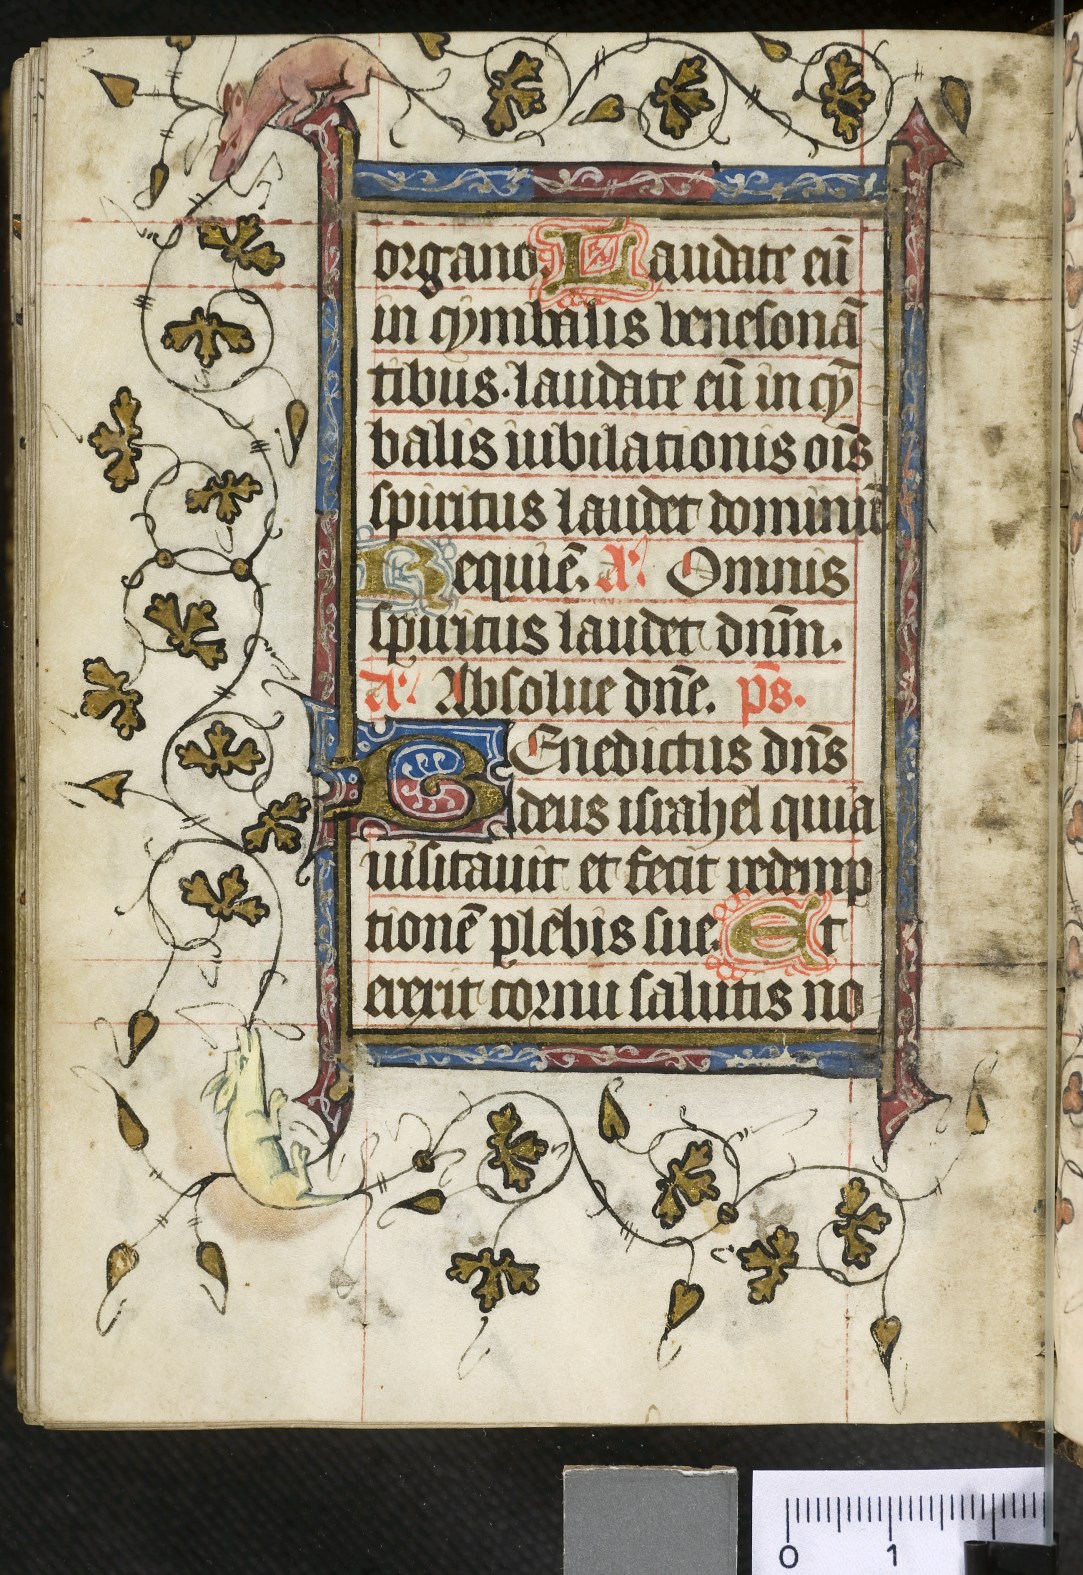 organo. Laudate eū
in cymbalis benesonā
tibus. laudate eū in cȳ
balis iubilationis oīs
spiritus laudet dominū
Requiē. A'. Omnis
spiritus laudet dnm̄.
A'. Absolue dnē. ps̄.
BEnedictus dns̄
deus israhel quia
uisitauit et fecit redemp
tionē plebis sue. Et
erexit cornu salutis no
0 1